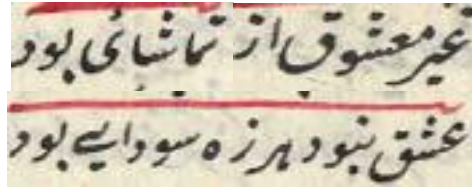 غیر معشوق از تماشائی بود
عشق نبود هرزه سودایی بود